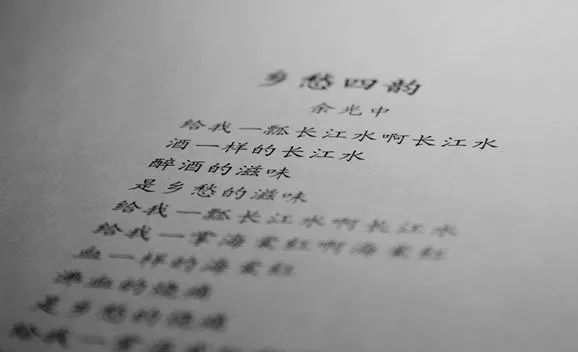 乡愁四韵
余光中
给我一瓢长江水啊长江水
酒一样的长江水
醉酒的滋味
是乡愁的滋味
给我一瓢长江水啊长江水
给我一掌海棠红啊海棠红
血一样的海棠红
血的烧痛
是乡愁的烧痛
给我一掌海棠红